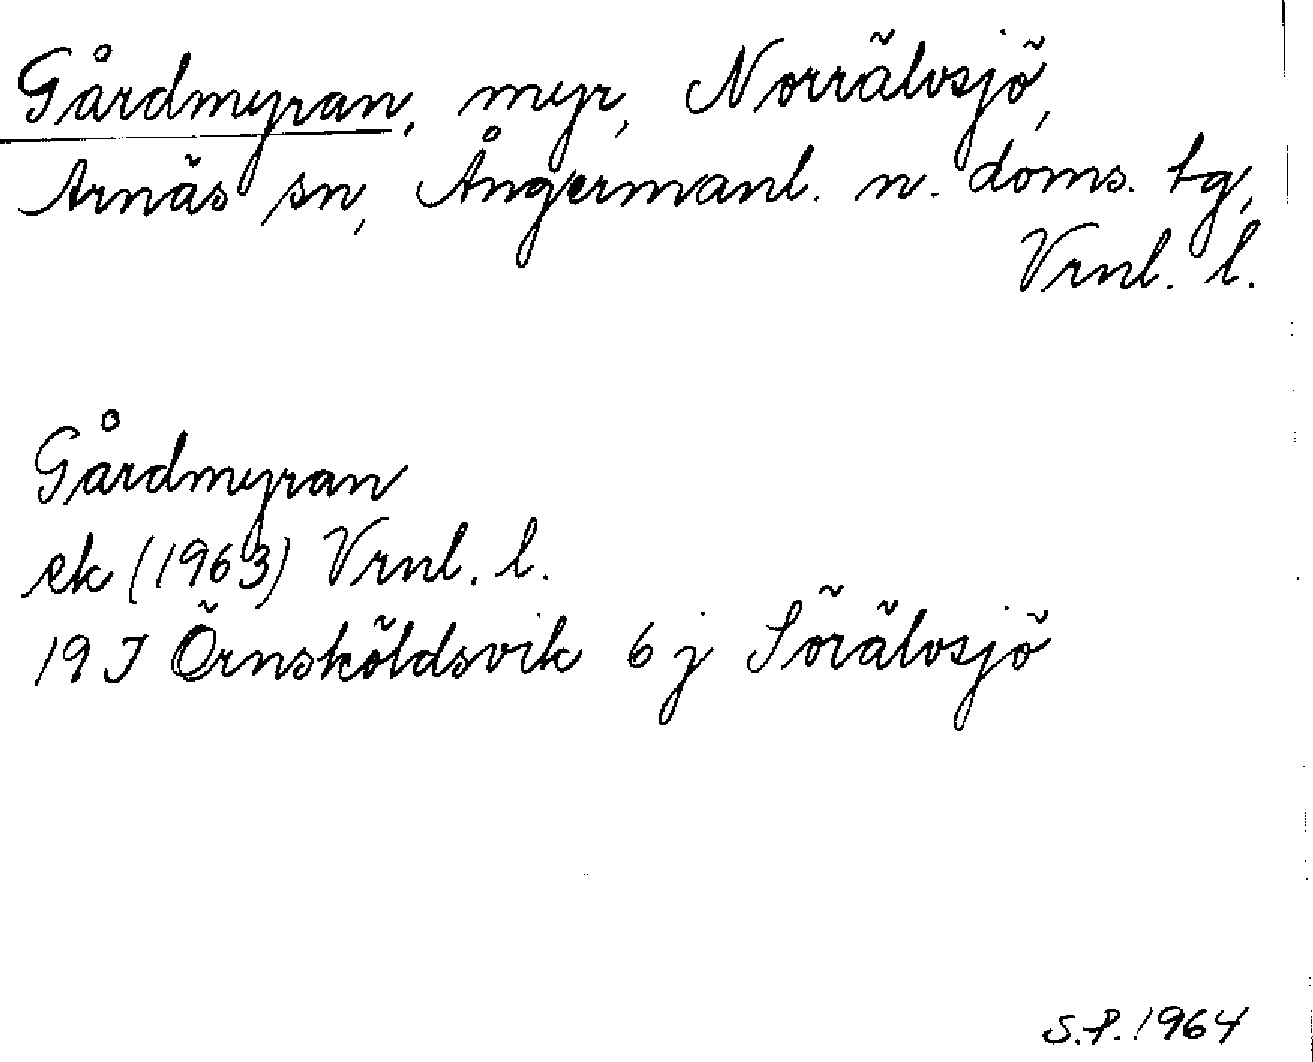 Gårdmyran, myr, Norrälvsjö,
Arnäs sn, Ångermanl. n. doms. tg,
Vrnl. l.
Gårdmyran
ek (1963) Vrnl. l.
19 J Örnsköldsvik 6 j Sörälvsjö
S.P. 1964